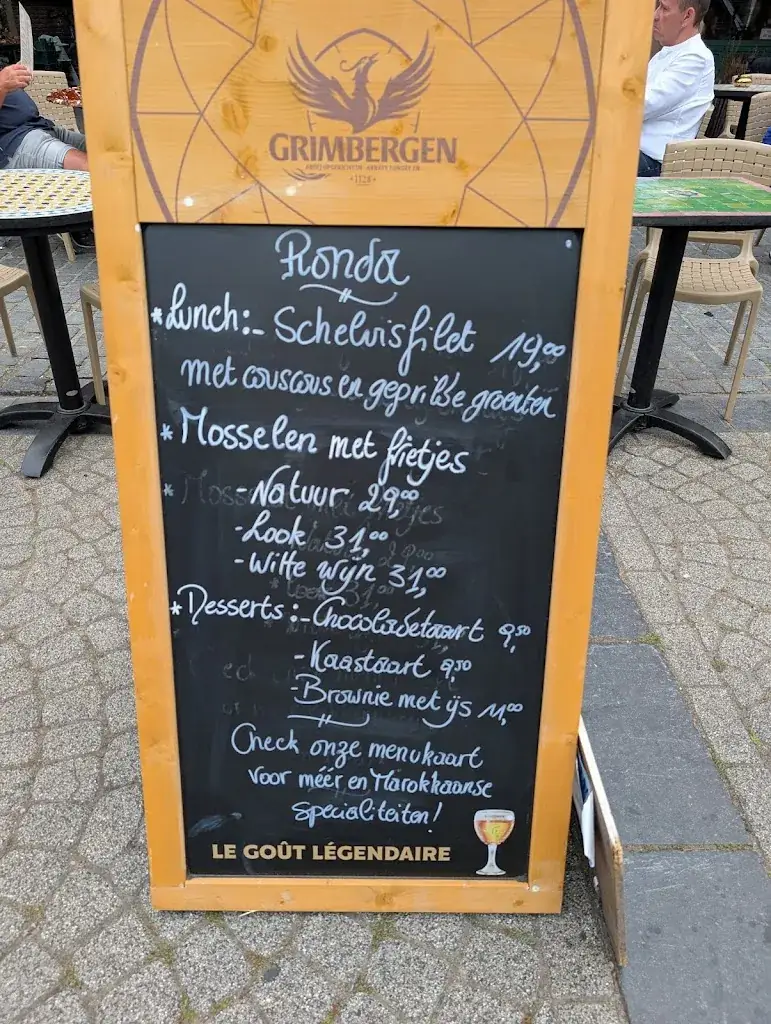 GRIMBERGEN
•1128•
Ronda
*Lunch:- Schelvisfilet 19,00
met couscous en gegrilde groenten
*Mosselen met frietjes
-Natuur 29,00
-Look 31,00
-Witte wijn 31,00
*Desserts:-Chocoladetaart 9,50
-Kaastaart 9,50
-Brownie met ijs 11,00
Check onze menukaart
voor méér en Marokkaanse
specialiteiten!
LE GOÛT LÉGENDAIRE